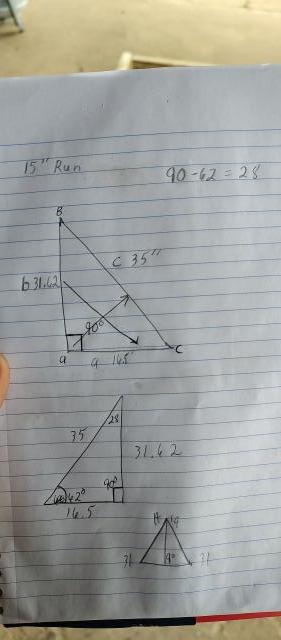 15" Run
90-62=28
B
c 35"
b 31.62
90°
a
a 16.5
C
28
35
31.62
62°
90°
16.5
31
90
31